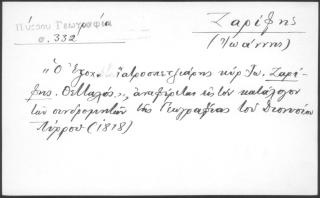 Πύρρου Γεωγραφία
σ. 332
Ζαρίφης
(Ἰωάννης)
«Ὁ Ἐξοχ. Ἰατροσπετζιάρης κύρ Ἰω. Ζαρί-
φης. Θετταλός», ἀναφέρεται εἰς τόν κατάλογον
τῶν συνδρομητῶν τῆς Γεωγραφίας τοῦ Διονυσίου
Πύρρου (1818)